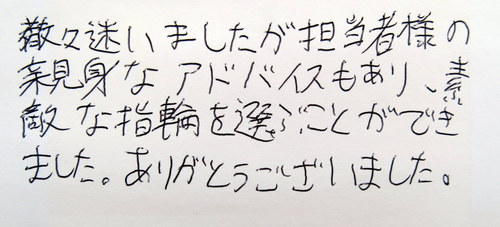 散々迷いましたが担当者様の
親身なアドバイスもあり、素
敵な指輪を選ぶことができ
ました。ありがとうございました。